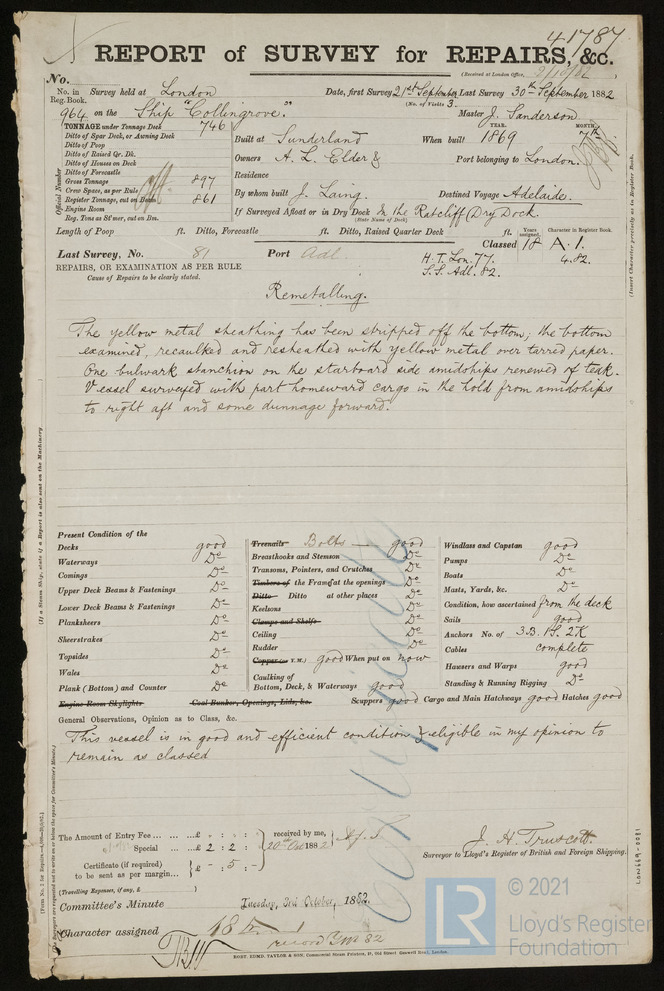 41787
REPORT of SURVEY for REPAIRS, &c.
(Received at London Office, 2/10/82 )
No.
No. in Reg. Book. Survey held at London Date, first Survey 21st September Last Survey 30th September 1882
(No. of Visits 3.
964 on the Ship "Collingrove." Master J. Sanderson
TONNAGE under Tonnage Deck 746
Ditto of Spar Deck, or Awning Deck
Ditto of Poop
Ditto of Raised Qr. Dk.
Ditto of Houses on Deck
Ditto of Forecastle
Gross Tonnage 897
Crew Space, as per Rule
Register Tonnage, cut on Beam 861
Engine Room
Reg. Tons as St'mer, cut on Bm.
Official Number
Built at Sunderland When built YEAR. 1869 MONTH. 7th
Owners A. L. Elder & Port belonging to London.
Residence
By whom built J. Laing. Destined Voyage Adelaide.
If Surveyed Afloat or in Dry Dock In the Ratcliff Dry Dock.
(State Name of Dock)
Length of Poop ft. Ditto, Forecastle ft. Ditto, Raised Quarter Deck ft.
Years assigned. Character in Register Book.
Classed 18 A.1.
4.82.
Last Survey, No. 81 Port Adl.
H.T. Lon. 77.
S.S. Adl. 82.
REPAIRS, OR EXAMINATION AS PER RULE
Cause of Repairs to be clearly stated.
Remetalling.
The yellow metal sheathing has been stripped off the bottom; the bottom
examined, recaulked and resheathed with yellow metal over tarred paper.
One bulwark stanchion on the starboard side amidships renewed of teak.
Vessel surveyed with part homeward cargo in the hold from amidships
to right aft and some dunnage forward.
Present Condition of the
Decks good
Waterways Do
Comings Do
Upper Deck Beams & Fastenings Do
Lower Deck Beams & Fastenings Do
Planksheers Do
Sheerstrakes Do
Topsides Do
Wales Do
Plank (Bottom) and Counter Do
Engine Room Skylights Coal Bunker, Openings, Lids, &c.
Treenails Bolts good
Breasthooks and Stemson Do
Transoms, Pointers, and Crutches Do
Timbers of the Frame at the openings Do
Ditto Ditto at other places Do
Keelsons Do
Clamps and Shelfs Do
Ceiling Do
Rudder Do
Copper (or Y.M.) good When put on now
Caulking of
Bottom, Deck, & Waterways good
Windlass and Capstan good
Pumps Do
Boats Do
Masts, Yards, &c. Do
Condition, how ascertained from the deck
Sails good
Anchors No. of 3.B. 1S. 2K
Cables complete
Hawsers and Warps good
Standing & Running Rigging Do
Scuppers good Cargo and Main Hatchways good Hatches good
General Observations, Opinion as to Class, &c.
This vessel is in good and efficient condition & eligible in my opinion to
remain as classed
The Amount of Entry Fee £ - : - : - received by me,
Special £ 2 : 2 : 20th Oct 1882
Certificate (if required) £ - : 5 : -
to be sent as per margin
(Travelling Expenses, if any, £ )
J. H. Truscott.
Surveyor to Lloyd's Register of British and Foreign Shipping.
Committee's Minute Tuesday, 3rd October, 1882.
Character assigned 18
record YM 82
ROBT. EDMD. TAYLOR & SON, Commercial Steam Printers, 19, Old Street Goswell Road, London.
(If a Steam Ship, state if a Report is also sent on the Machinery
(The Surveyors are requested not to write on or below the space for Committee's Minute.)
(Insert Character precisely as in Register Book.
LON669-0081
© 2021
LR
Lloyd's Register
Foundation